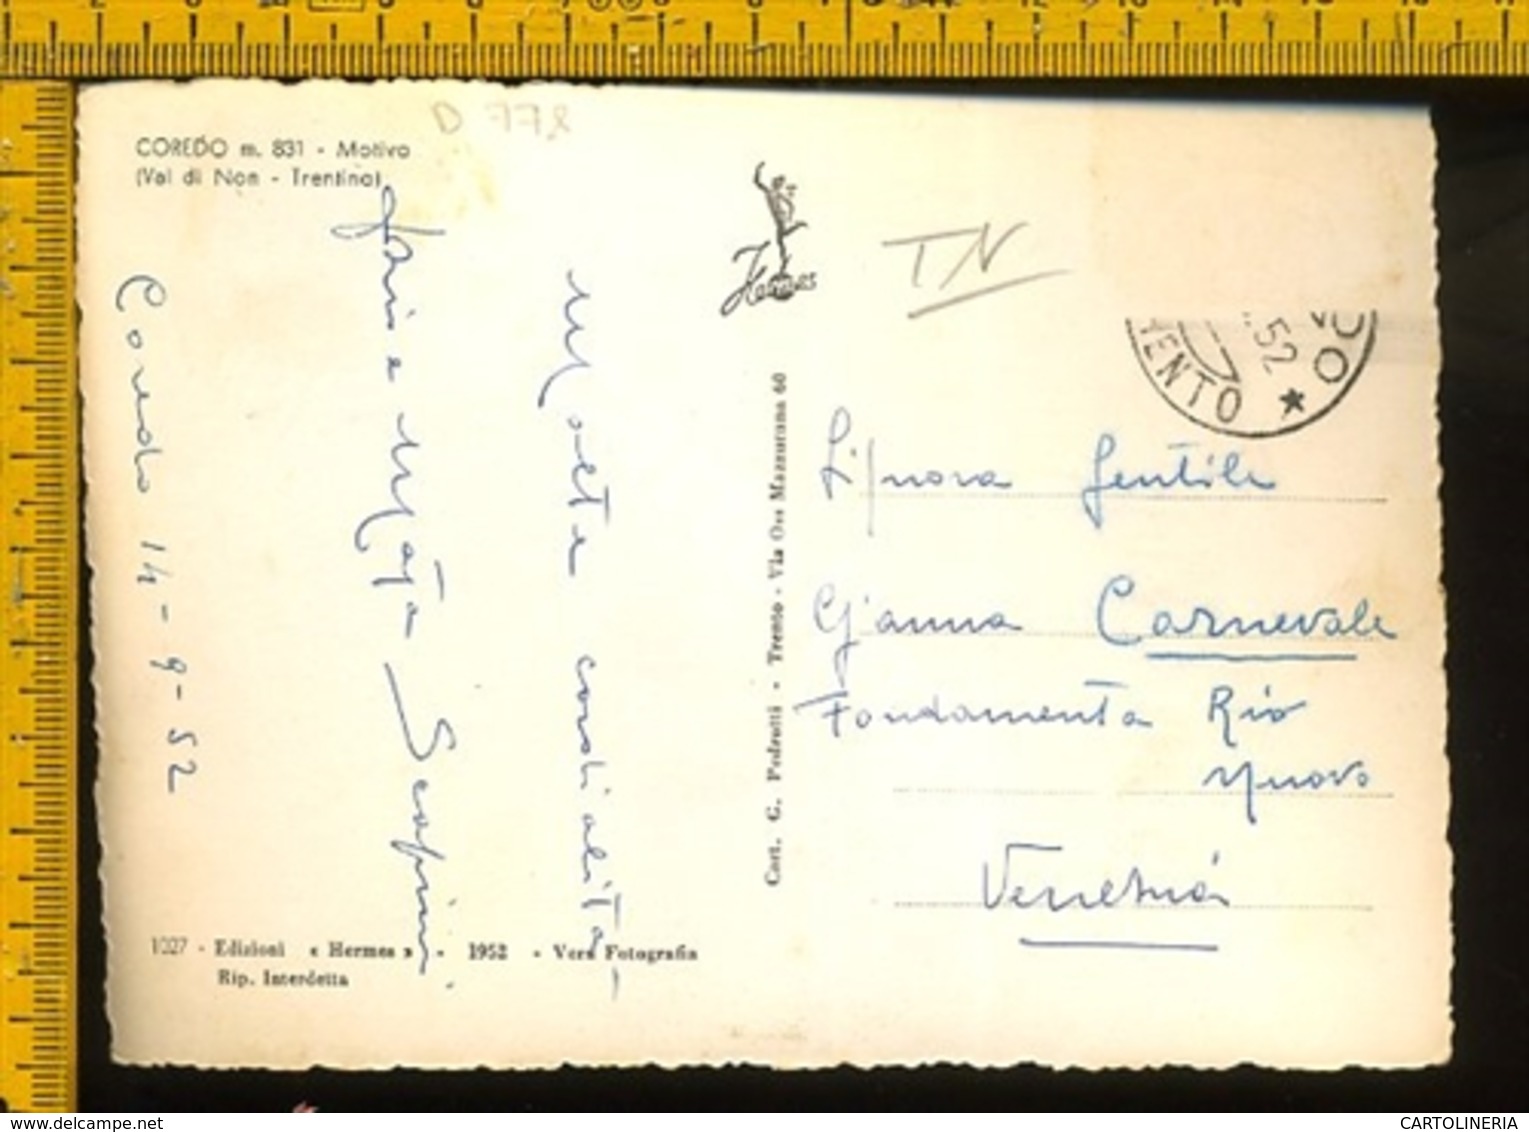 D 778
COREDO m. 831 - Motivo
(Val di Non - Trentino)
Hermes
TN
52
TENTO *
Coredo 14-9-52
Molte cordialità
e Mary Scarpini
Cart. G. Pedrotti - Trento - Via Oss Mazzurana 60
Signora Gentile
Gianna Carnevale
Fondamenta Rio
Nuovo
Venezia
1027 - Edizioni « Hermes » - 1952 - Vera Fotografia
Rip. Interdetta
www.delcampe.net
CARTOLINERIA